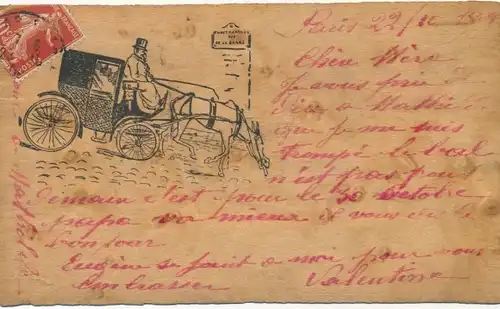 Paris 22/10
Chère Mère
Je vous prie de
dire à Mathilde
que je me suis
trompé le bal
n'est pas pour
demain c'est pour le 30 Octobre
papa va mieux il vous
bonsoir
Eugène se joint à moi pour vous
embrasser Valentine